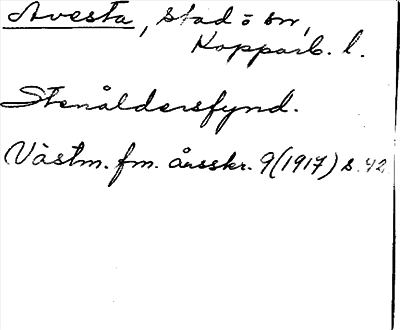 Avesta, stad o sn,
Kopparb. l.
Stenåldersfynd.
Västm. fm. årsskr. 9 (1917) s. 42